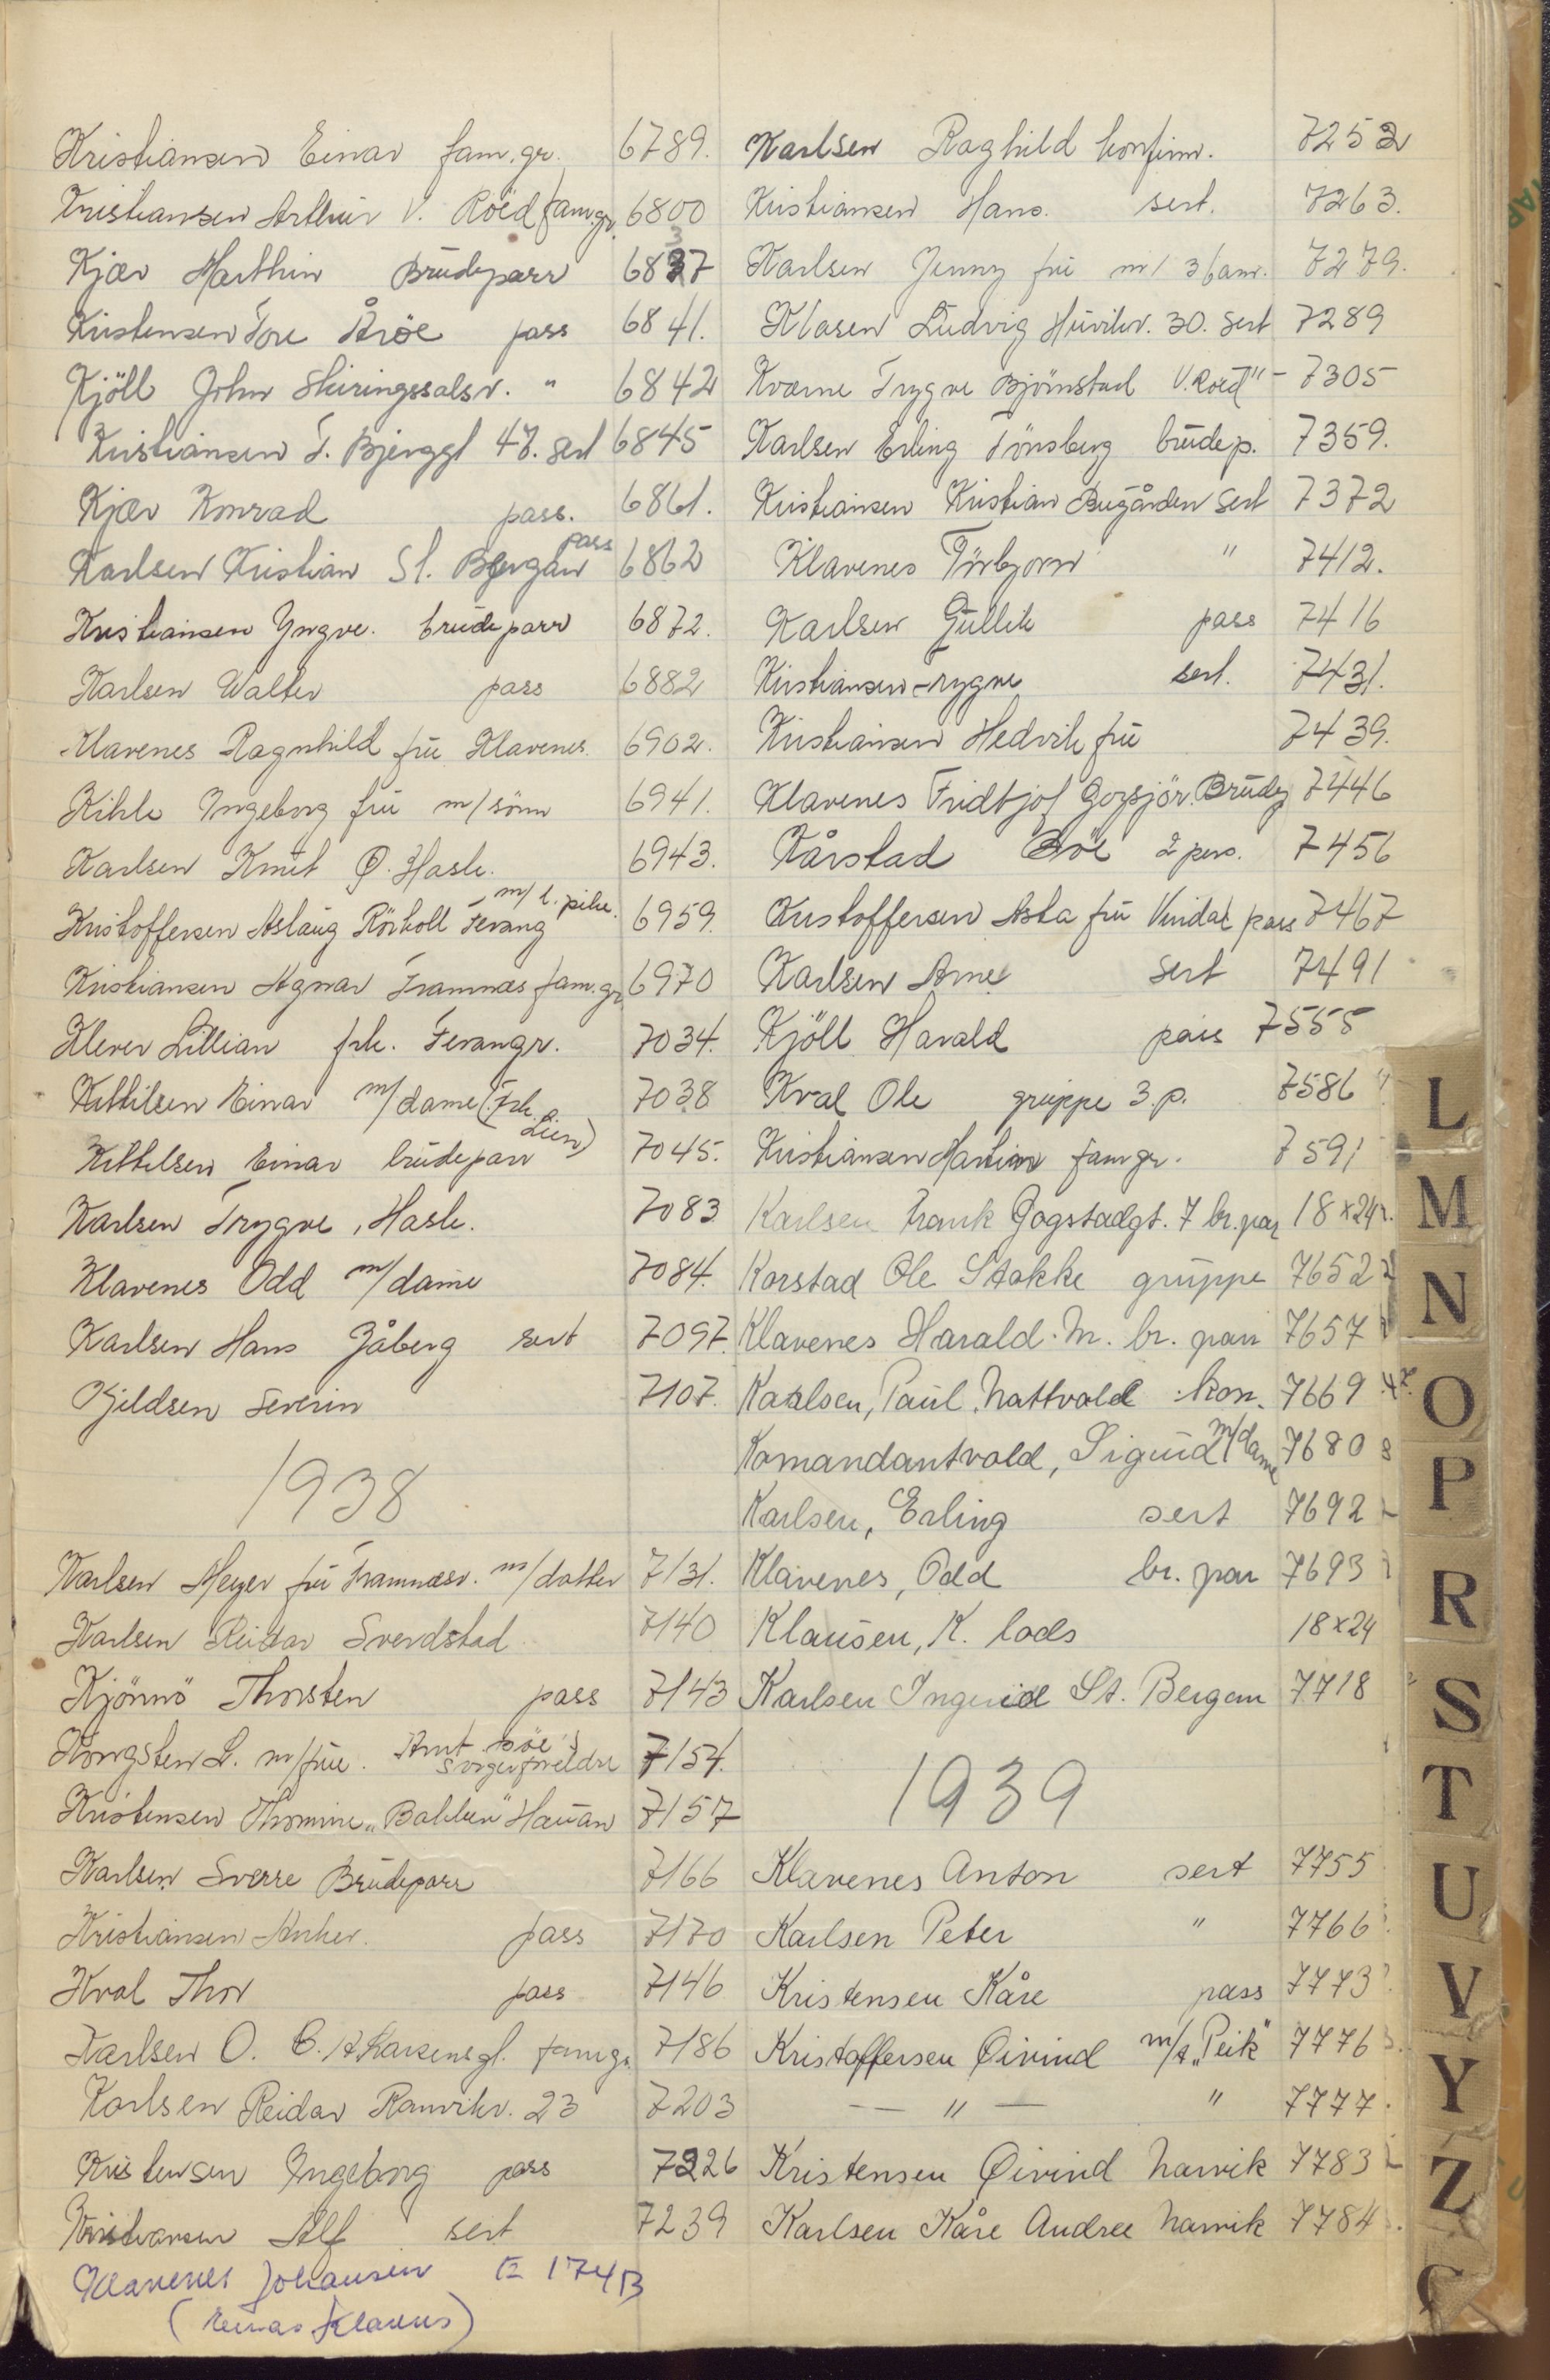 Kristiansen Einar fam.gr. 6789.
Kristiansen Arthur V. Roed fam.gr. 6800
Kjær Marthin Brudeparr 6837
Kristensen Tore Åröe pass 6841.
Kjöll John Skiringssalsv. " 6842
Kristiansen T. Bjerggt 47. sert 6845
Kjær Konrad pass. 6861.
Karlsen Kristian St. Bergan pass 6862
Kristiansen Yngve. brudeparr 6872.
Karlsen Walter pass 6882
Klavenes Ragnhild fru Klavenes 6902.
Kihle Ingeborg fru m/sönn 6941.
Karlsen Knut Ø. Hasle. 6943.
Kristoffersen Aslaug Rörkoll Tevang m/l. pike. 6959.
Kristiansen Agnar Framnæs fam.gr. 6970
Klever Lillian frk. Tevangr. 7034.
Kittilsen Einar m/dame (Frk. Lien) 7038
Kittilsen Einar brudeparr 7045.
Karlsen Trygve, Hasle. 7083
Klavenes Odd m/dame 7084.
Karlsen Hans Jåberg sert 7097.
Kjeldsen Severin 7107.
1938
Karlsen Meyer fru Framnæsv. m/datter 7131.
Karlsen Reidar Sverdstad 7140
Kjönnö Thorsten pass 7143
Kongsten L. m/frue. Amt Böe's svigerforeldre 7154.
Kristensen Thomine "Bakken" Hauan 7157
Karlsen Sverre Brudeparr 7166
Kristiansen Anker. pass 7170
Kval Thor pass 7146
Karlsen O. C. A. Larsensgt. famgr. 7186
Karlsen Reidar Ranvikv. 23 7203
Kristensen Ingeborg pass 7226
Kristiansen Alf sert 7239
Klavenes Johansen E 174B
(Klavens)
Karlsen Raghild konfirm. 7252
Kristiansen Hans. sert. 7263.
Karlsen Jenny fru m/3 barn. 7279.
Klasen Ludvig Huvikv. 30. sert 7289
Kværne Trygve Björnstad V.Roed " - 7305
Karlsen Erling Tönsberg brudep. 7359.
Kristiansen Kristian Bugården sert 7372
Klavenes Torbjorn " 7412.
Karlsen Gullik pass 7416
Kristiansen Trygve sert. 7431.
Kristiansen Hedvik fru 7439.
Klavenes Fridtjof Gogsjör. Brudep 7446
Kårstad Böe 2 pers. 7456
Kristoffersen Asta fru Vindal pass 7467
Karlsen Arne sert 7491
Kjöll Harald pass 7555
Kval Ole gruppe 3.p. 7586
Kristiansen Martin famgr. 7591
Karlsen Frank Gogstadgt. 7 br.par 18x24
Korstad Ole Stokke gruppe 7652
Klavenes Harald M. br. parr 7657
Kaalsen, Paul, Nattvold kon. 7669
Komandantvold, Sigurd m/dame 7680
Karlsen, Erling sert 7692
Klavenes, Odd br. par 7693
Klausen, K. lods 18x24
Karlsen Ingerid St. Bergan 7718
1939
Klavenes Anton sert 7755
Karlsen Peter " 7766
Kristensen Kåre pass 7773
Kristoffersen Øivind m/t "Peik" 7776
— " — " 7777.
Kristensen Øivind Narvik 7783
Karlsen Kåre Andree Narvik 7784
L
M
N
O
P
R
S
T
U
V
Y
Z